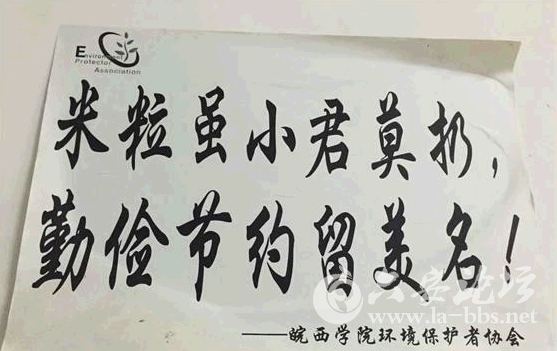 Environment
Protector
Association
米粒虽小君莫扔，
勤俭节约留美名！
——皖西学院环境保护者协会
六安论坛
www.la-bbs.net